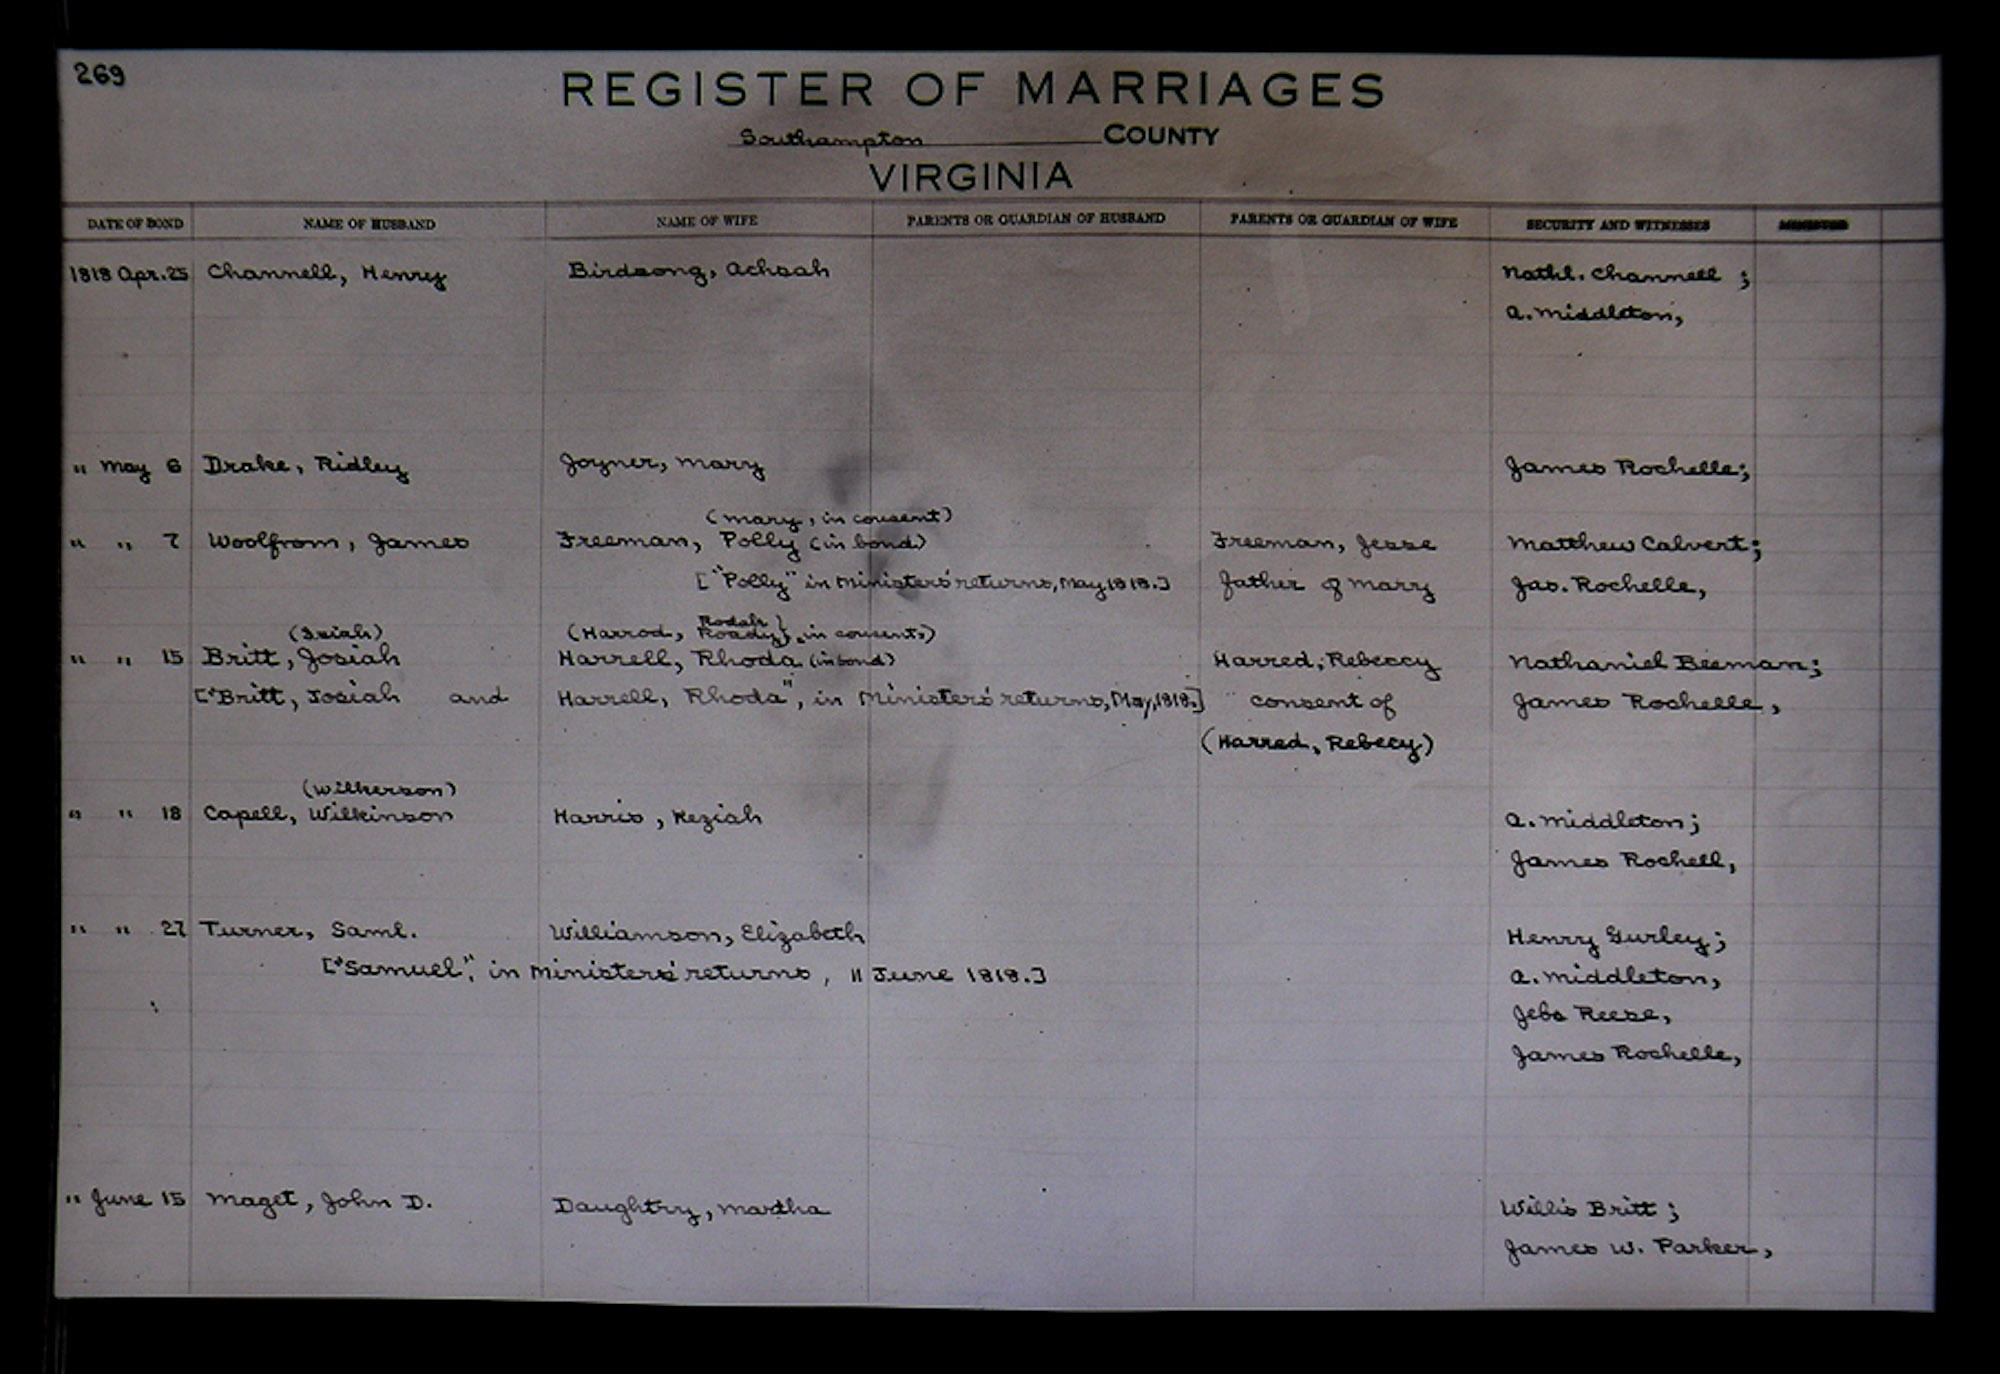 269
REGISTER OF MARRIAGES
Southampton COUNTY
VIRGINIA
DATE OF BOND NAME OF HUSBAND NAME OF WIFE PARENTS OR GUARDIAN OF HUSBAND PARENTS OR GUARDIAN OF WIFE SECURITY AND WITNESSES
1818 Apr. 25 Channell, Henry Birdsong, Achsah Nathl. Channell ;
A. Middleton,
" May 6 Drake, Ridley Joyner, Mary James Rochelle;
(Mary, in consent)
" " 7 Woolfrom, James Freeman, Polly (in bond) Freeman, Jesse Matthew Calvert;
["Polly" in Ministers' returns, May 1818.] father of Mary Jas. Rochelle,
Rodah
(Isiah) (Harrod, Roady}, in consent,)
" " 15 Britt, Josiah Harrell, Rhoda (in bond) Harred, Rebeccy Nathaniel Beeman;
["Britt, Josiah and Harrell, Rhoda", in Ministers' returns, May, 1818.] consent of James Rochelle,
(Harred, Rebecy)
(Wilkerson)
" " 18 Capell, Wilkinson Harris, Keziah A. Middleton;
James Rochell,
" " 27 Turner, Saml. Williamson, Elizabeth Henry Gurley;
["Samuel", in Ministers' returns, 11 June 1818.] A. Middleton,
Reese,
James Rochelle,
" June 15 Maget, John D. Daughtry, Martha Willis Britt ;
James W. Parker,